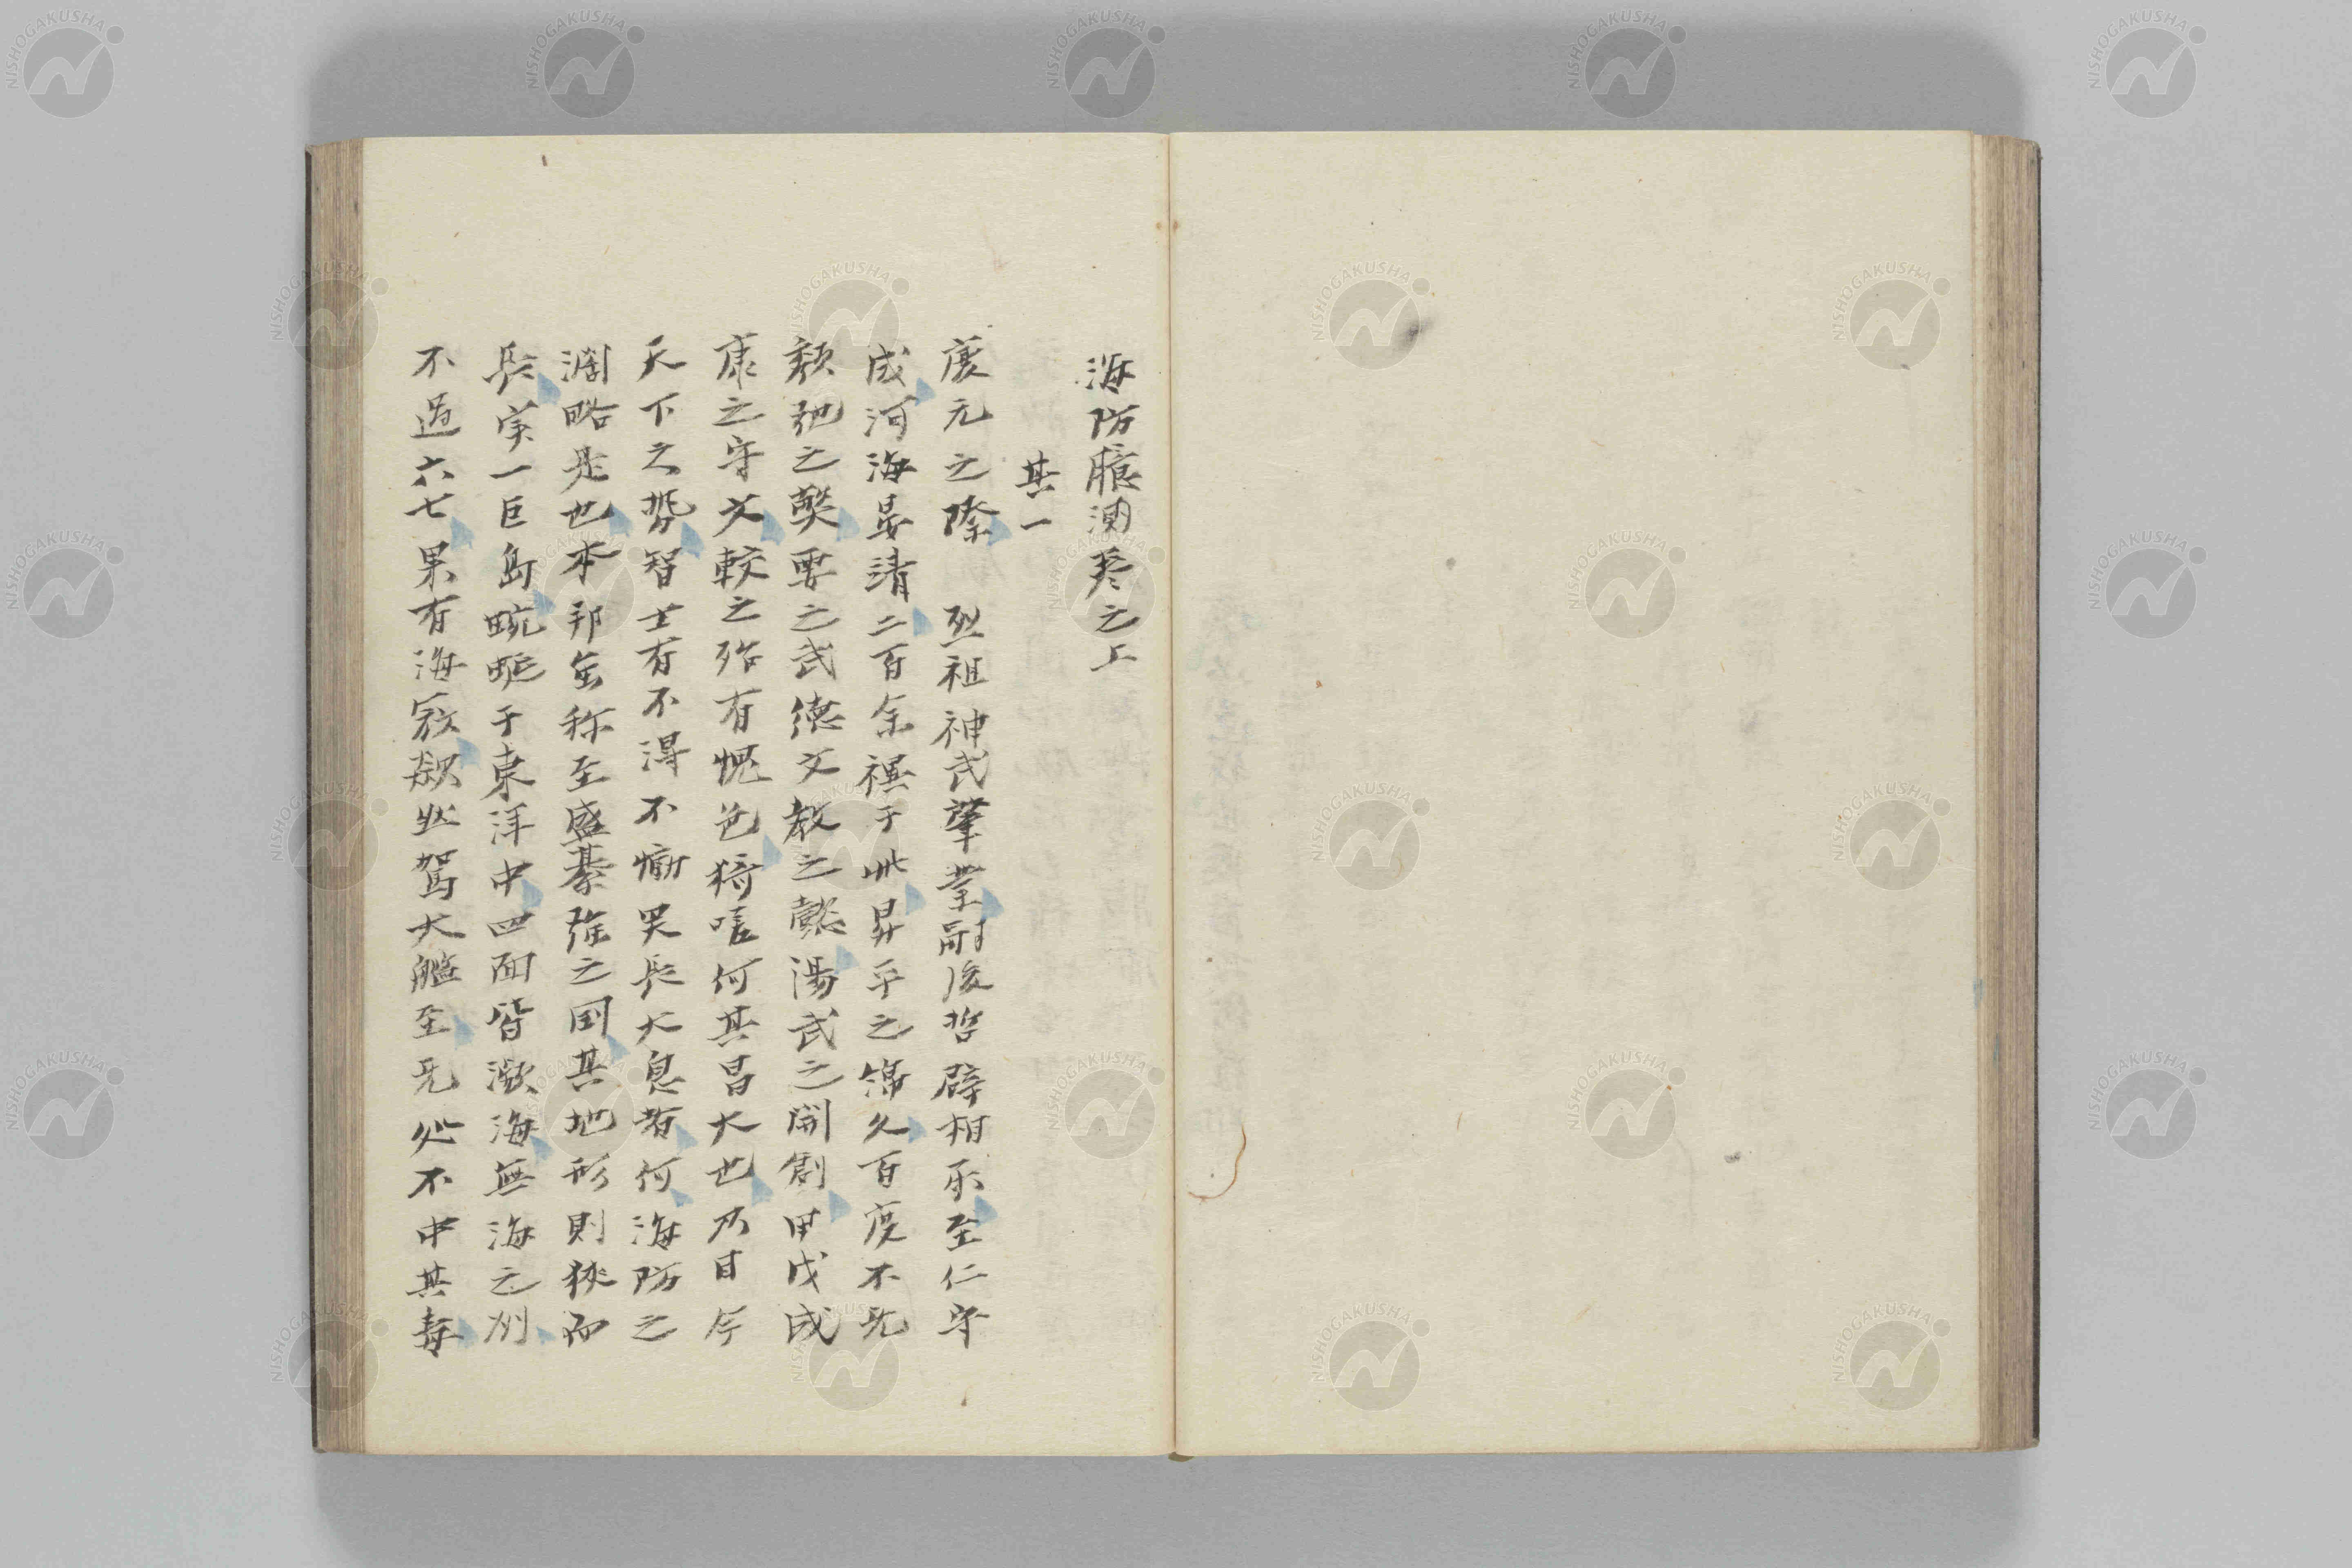 海防臆測巻之上
其一
慶元之際 烈祖神武肇業嗣後哲辟相承至仁守
成河海晏清二百余禩于此昇平之綿久百度不无
頽弛之獘要之武徳文教之懿湯武之開創甲戊成
康之守文較之殆有愧色猗嗟何其昌大也乃目今
天下之勢智士有不得不慟哭長大息者何海防之
濶略是也本邦缶称至盛綦強之国其地形則狭而
長実一巨島蜿蜒于東洋中四面皆瀕海無海之州
不過六七果有海寇欻然駕大艦至无処不中其毒
NISHOGAKUSHA